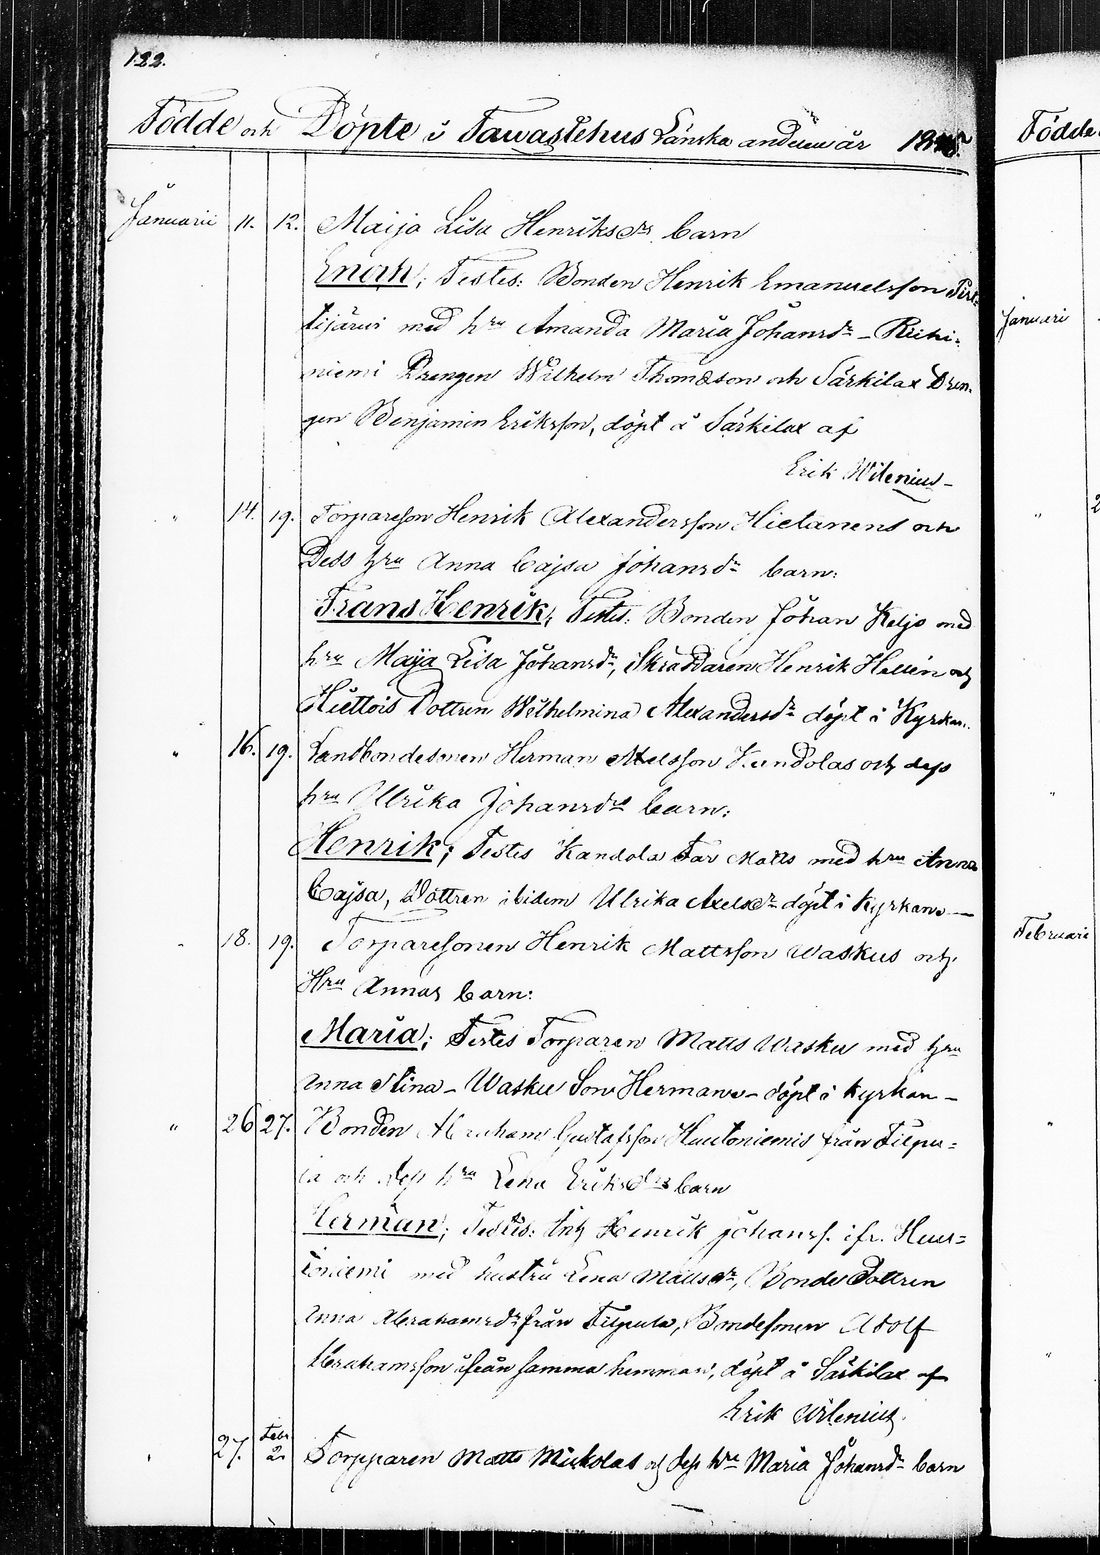 122.
Födde och Döpte i Tawastehus Länska andelen år
Födde
Januarii 11. 12. Maija Lisa Henriksdrs barn
Enoch; Testes: Bonden Henrik Emanuelsson
med hru Amanda Maria Johansdr
niemi Drengen Wilhelm Thomasson och Särkilax Dren-
gen Benjamin Eriksson, döpt å Särkilax af
Erik Wilenius
Januari
" 14. 19. Torpareson Henrik Alexandersson Hietanens och
Dess hru Anna Cajsa Johansdr barn:
Frans Henrik; Testes: Bonden Johan Keljo med
hru Maija Lisa Johansdr, Skräddaren Henrik Hellén och
Dottren Wilhelmina Alexandersdr döpt i Kyrkan.
" 16. 19. Landbondesonen Herman Axelsson Kandolas och dess
hru Ulrika Johansdrs barn:
Henrik; Testes Kandola Far Matts med hru Anna
Cajsa, Dottren ibidem Ulrika Axelsdr döpt i Kyrkan. —
" 18. 19. Torparesonen Henrik Mattsson Waskus och
Hru Annas barn:
Februari
Maria; Testes Torparen Matts Wasku med hru
Anna Stina – Wasku Son Herman – döpt i kyrkan –
" 26 27. Bonden Abraham Gustafsson Huutoniemis från Filpu=
la och dess hru Lena Eriksdrs barn
Herman; Testes: Henrik Johanss. ifr. Huu=
toniemi med hustru Lena Mattsdr, Bonde Dottren
Anna Abrahamsdr från Filpula, Bondesonen Adolf
Abrahamsson ifrån samma hemman, döpt å Särkilax af
Erik Wilenius.
27. Febr. 2. Torpparen Matts Mickolas och dess hru Maria Johansdr barn